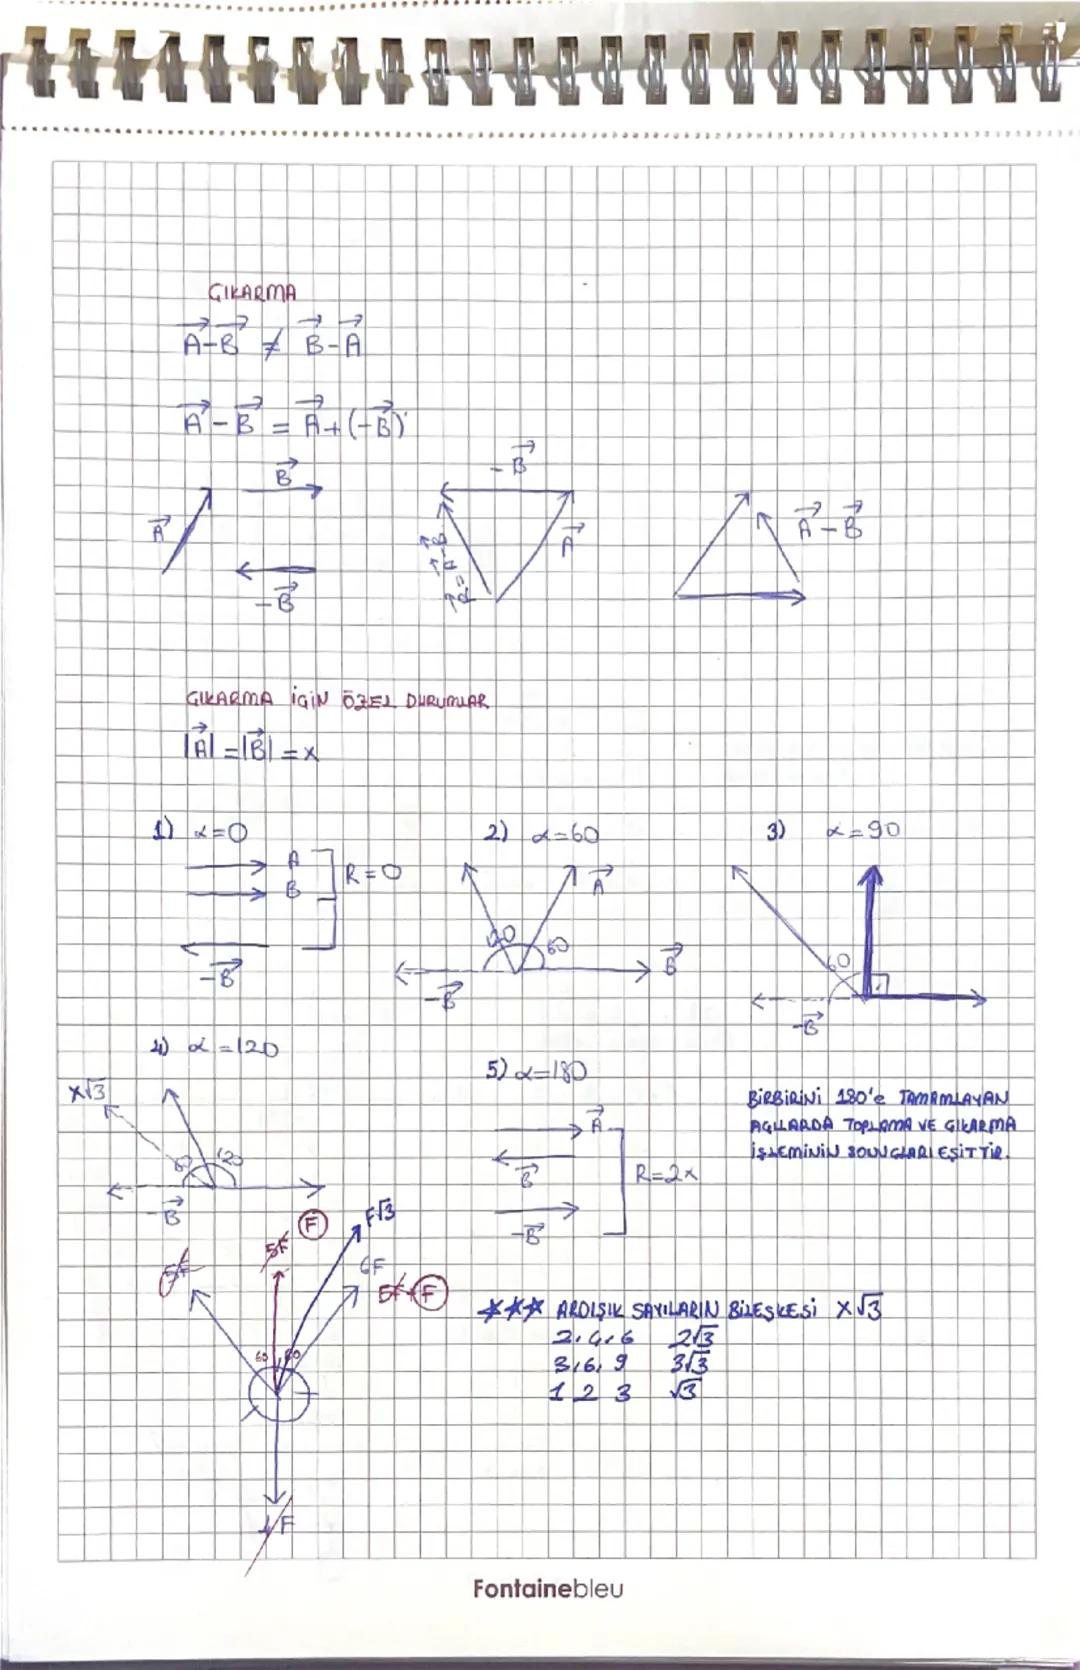 ÇIKARMA
A⃗-B⃗ ≠ B⃗-A⃗
A⃗-B⃗ = A⃗+(-B⃗)
B⃗
-B⃗
A⃗
A⃗
A⃗-B⃗
R⃗=A⃗-B⃗
-B⃗
ÇIKARMA İÇİN ÖZEL DURUMLAR
|A⃗|=|B⃗|=x
1) α=0
2) α=60
3) α=90
A
B
R=0
-B⃗
A⃗
120
60
B⃗
-B⃗
60
-B⃗
4) α=120
5) α=180
x√3
60
120
-B⃗
A⃗
B⃗
R=2x
-B⃗
BİRBİRİNİ 180'e TAMAMLAYAN
AÇILARDA TOPLAMA VE ÇIKARMA
İŞLEMİNİN SONUÇLARI EŞİTTİR.
F
F√3
5F
5F
6F
5F+F
60
60
F
*** ARDIŞIK SAYILARIN BİLEŞKESİ x√3
2,4,6 2√3
3,6,9 3√3
1 2 3 √3
Fontainebleu